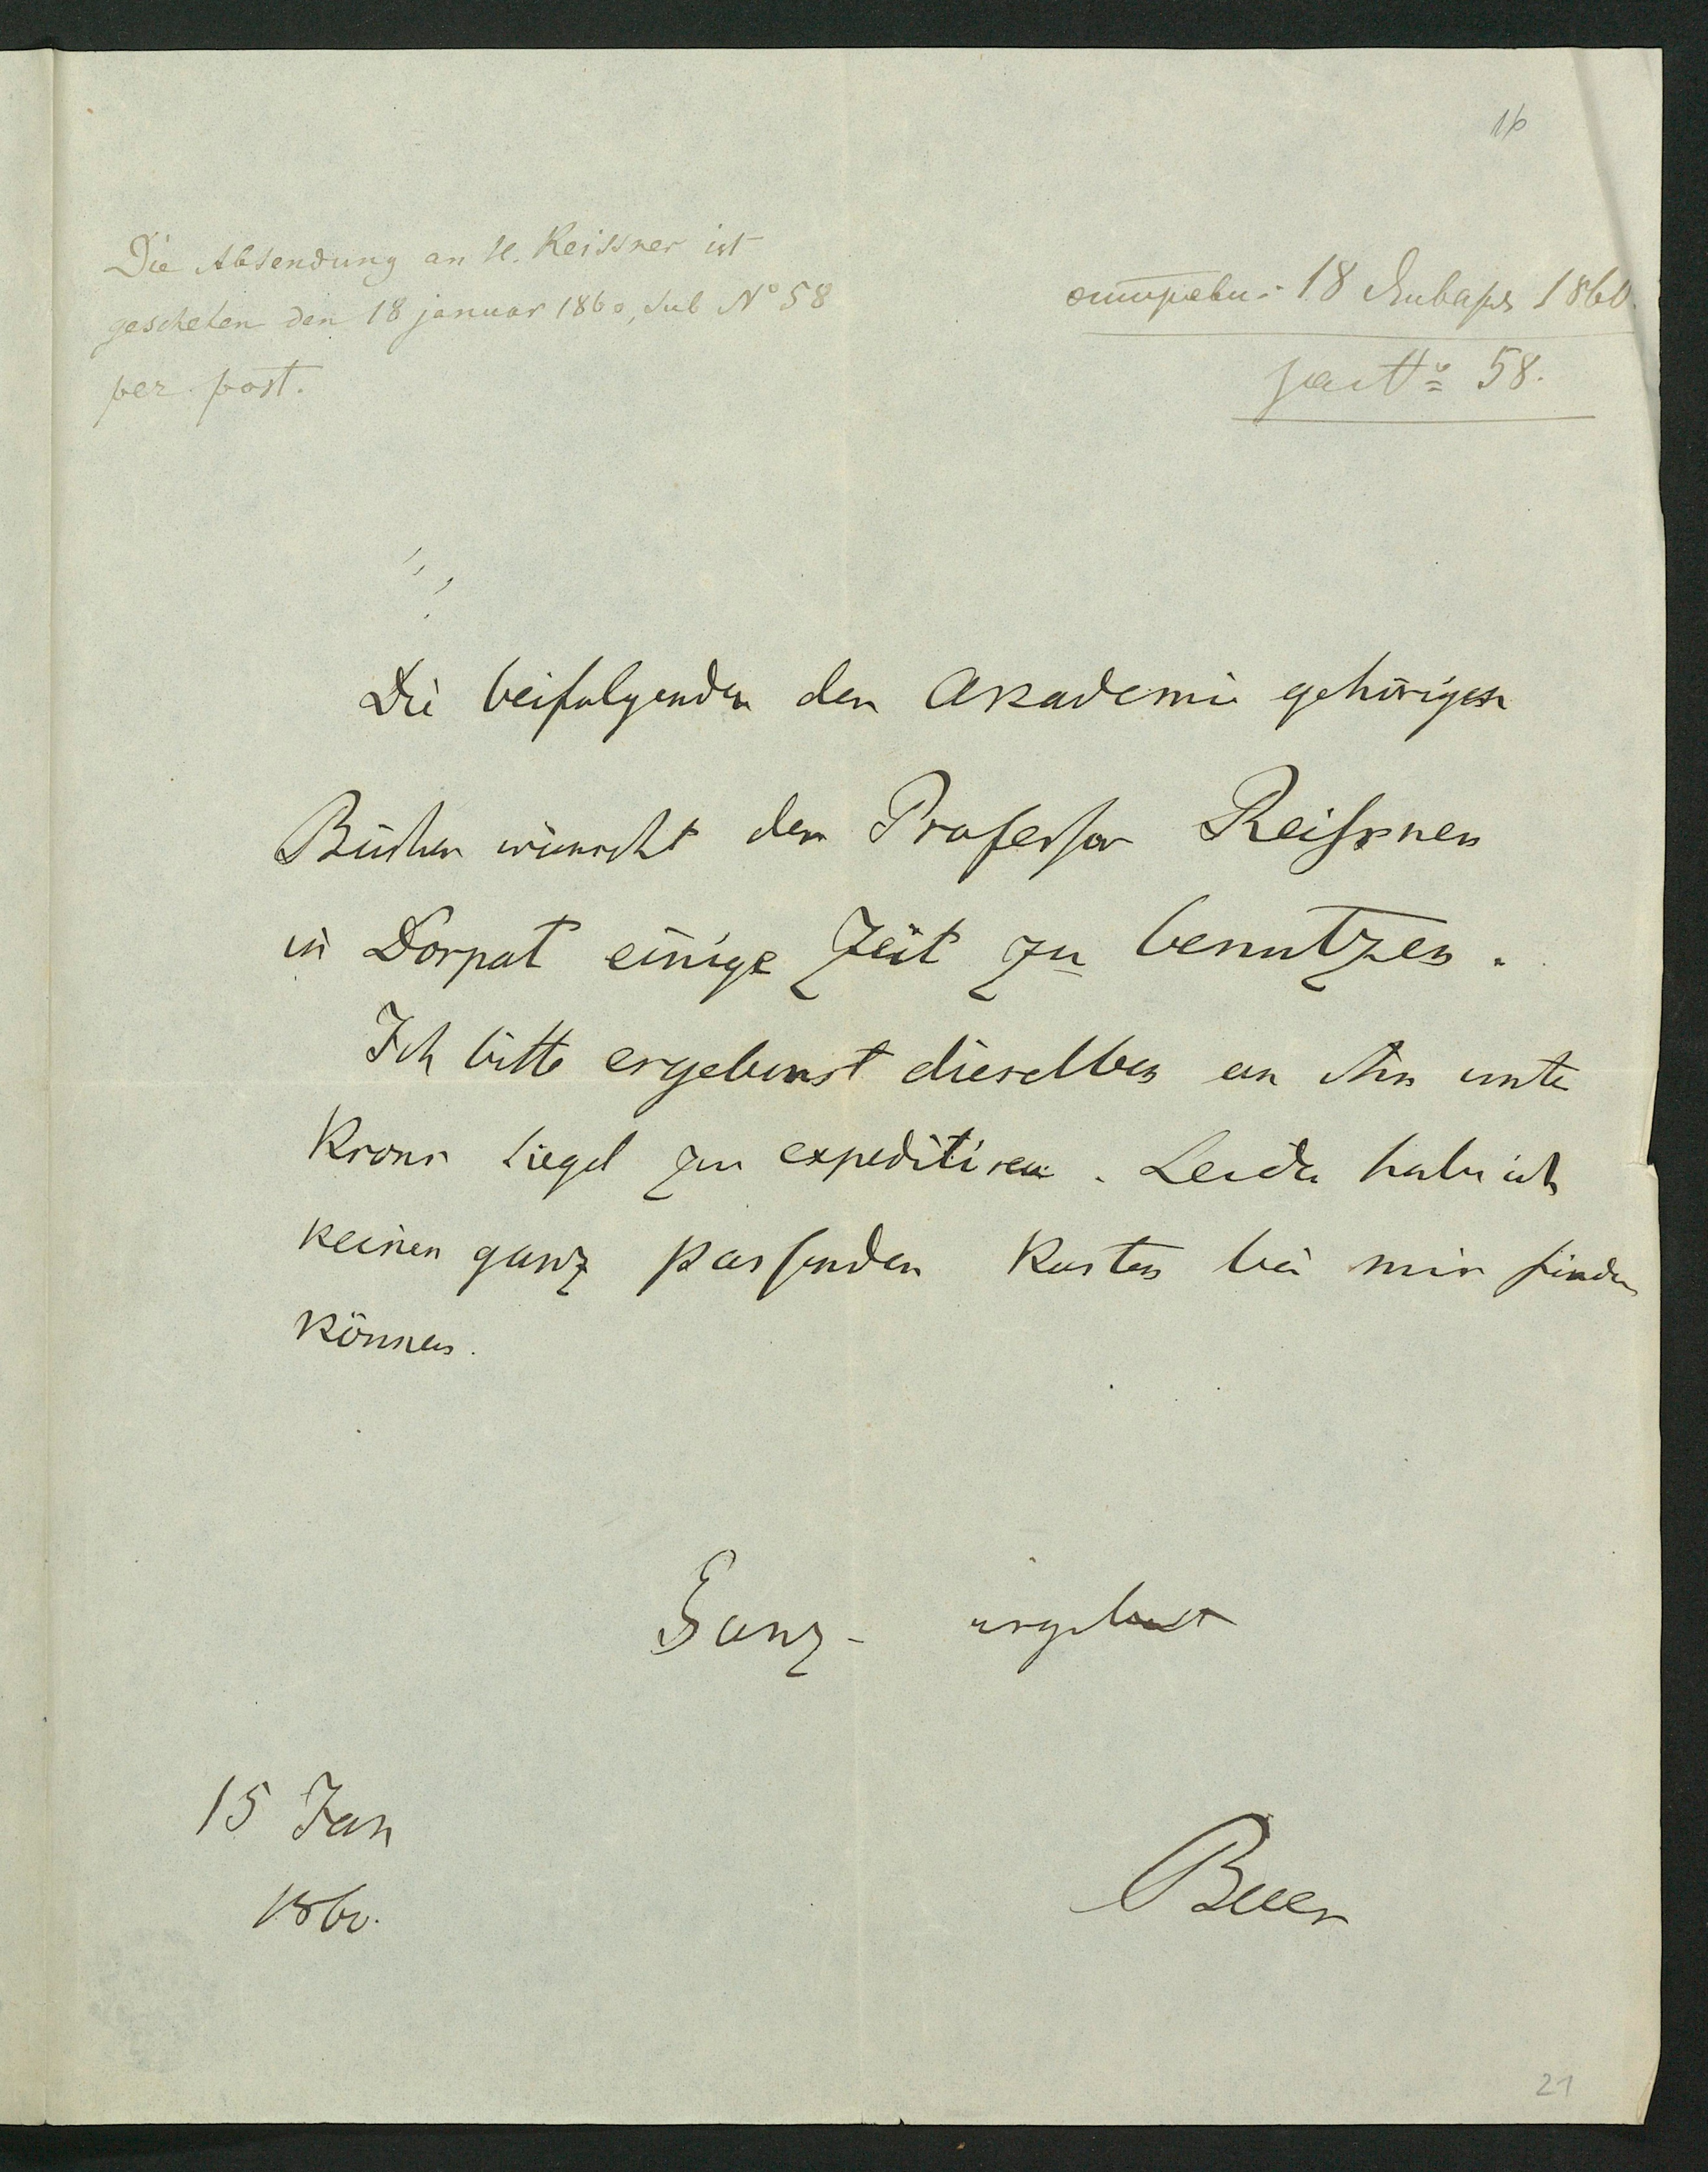 16
Die Absendung an H. Reissner ist
geschehen den 18 januar 1860, sub N° 58
per post.
отправл: 18 Января 1860.
за № 58.
Die beifolgenden der Akademie gehörigen
Bücher wünscht der Professor Reissner
in Dorpat einige Zeit zu benutzen.
Ich bitte ergebenst dieselben an ihn unter
Krons Siegel zu expeditiren. Leider habe ich
keinen ganz passenden Kasten bei mir finden
können.
Ganz ergebenst
15 Jan
1860.
Baer
21